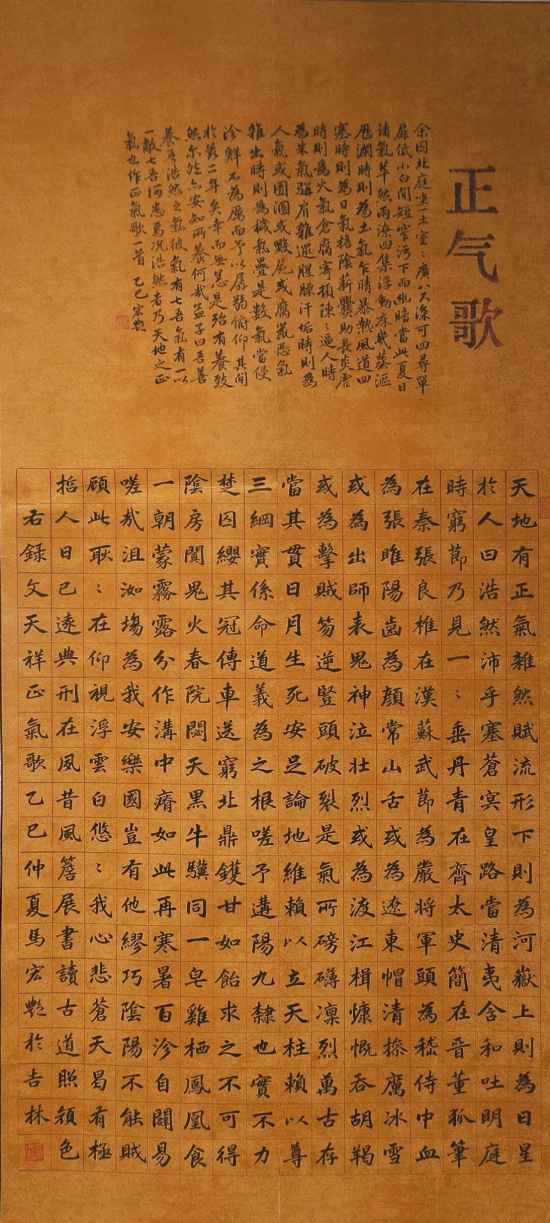 正气歌
余囚北庭坐一土室〻廣八尺深可四尋單
扉低小白間短窄污下而幽暗當此夏日
諸氣萃然雨潦四集浮動床几蒸漚
歷瀾時則為土氣乍晴暴熱風道四
塞時則為日氣檐陰薪爨助長炎虐
時則為火氣倉腐寄頓陳〻逼人時
為米氣駢肩雜遝腥臊汗垢時則為
人氣或圊溷或毀屍或腐鼠惡氣
雜出時則為穢氣疊是數氣當侵
沴鮮不為厲而予以孱弱俯仰其間
於茲二年矣幸而無恙是殆有養致
然尔然亦安知所養何哉孟子曰吾善
養吾浩然之氣彼氣有七吾氣有一以
一敵七吾何患焉況浩然者乃天地之正
氣也作正氣歌一首 乙巳宏艷
天地有正氣雜然賦流形下則為河嶽上則為日星
於人曰浩然沛乎塞蒼冥皇路當清夷含和吐明庭
時窮節乃見一〻垂丹青在齊太史簡在晉董狐筆
在秦張良椎在漢蘇武節為嚴將軍頭為嵇侍中血
為張睢陽齒為顏常山舌或為遼東帽清操厲冰雪
或為出師表鬼神泣壯烈或為渡江楫慷慨吞胡羯
或為擊賊笏逆豎頭破裂是氣所磅礴凜烈萬古存
當其貫日月生死安足論地維賴以立天柱賴以尊
三綱實係命道義為之根嗟予遘陽九隸也實不力
楚囚纓其冠傳車送窮北鼎鑊甘如飴求之不可得
陰房闃鬼火春院閟天黑牛驥同一皂雞栖鳳凰食
一朝蒙霧露分作溝中瘠如此再寒暑百沴自闢易
嗟哉沮洳場為我安樂國豈有他繆巧陰陽不能賊
顧此耿〻在仰視浮雲白悠〻我心悲蒼天曷有極
哲人日已遠典刑在風昔風簷展書讀古道照顏色
右錄文天祥正氣歌乙巳仲夏馬宏艷於吉林